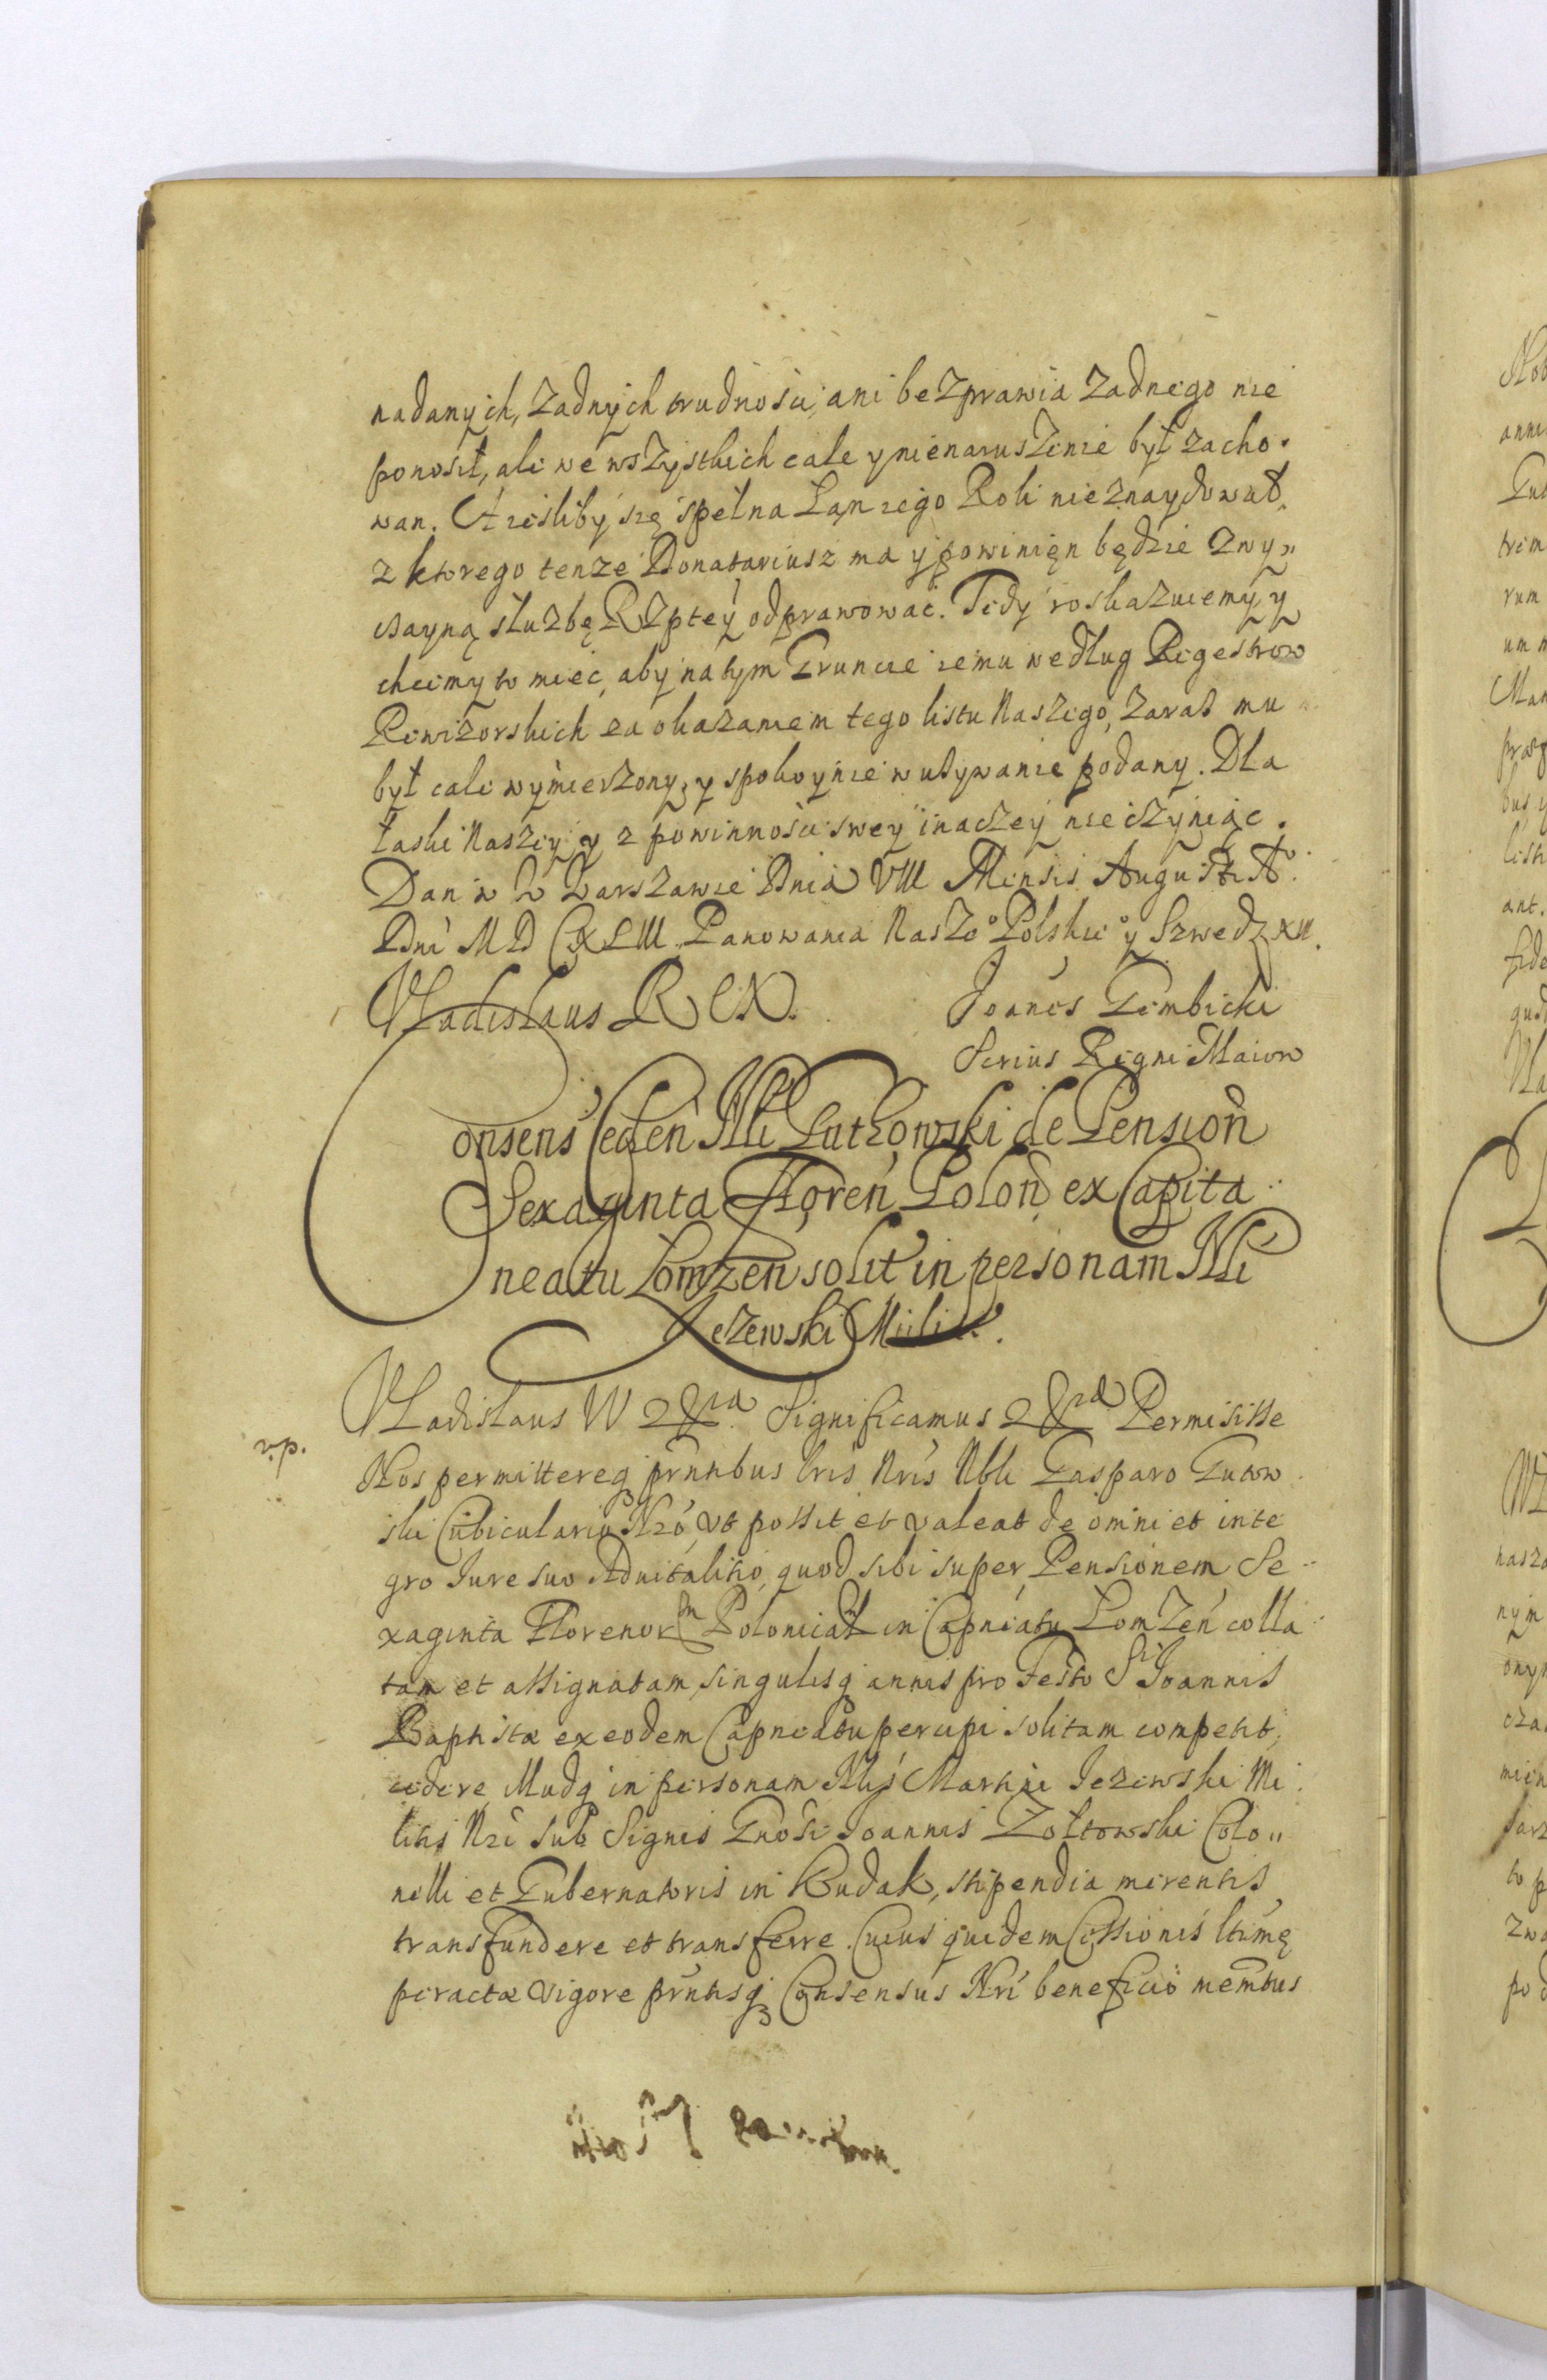 nadanych, żadnych trudności, ani bezprawia żadnego nie
ponosił, ale we wszystkich cale y nienaruszenie był zacho.
wan. A ieśliby się spełna Łan iego Roli nieznaydował,
z ktorego tenże Donatariusz ma y powinien będzie zwy„
czayną służbę Rzptey odprawować. Tedy roskazuiemy y
chcemy to mieć, aby na tym Gruncie iemu według Regestrow
Rewizorskich za okazaniem tego listu Naszego, zaraz mu
był cale wymierzony, y spokoynie w używanie podany. Dla
łaski Naszey y z powinności swey inaczey nieczyniąc.
Dan w Warszawie Dnia VIII Mensis Augusti Aº.
Dni MDCXLIII. Panowania Naszoº Polskieº y Szwedz XII.
Vladislaus REX. Joanes Gembicki
Scrius Regni Maior
Consens Ceden Nbli Gutkowski de Pension
Sexaginta Floren Polon ex Capita
neatu Łomzen solit in personam Nbli
Jeżewski Milit.
Vladislaus IV &ra Significamus &ra Permisisse
v.p.
Nos permittereq prntibus lris Nris Nbli Gasparo Gutow
ski Cubiculario Nro, Vt possit et valeat de omni et inte
gro Iure suo Aduitalitio, quod sibi super Pensionem Se
xaginta Florenorm Polonical in Capneatu Łomżen colla
tam et assignatam, singulisq annis pro Festo Sti Joannis
Baptistæ ex eodem Capneatu percipi solitam competit,
cedere, illudq in personam Nblis Martini Jeżewski Mi
litis Nri sub Signis Gnosi Joannis Żołtowski Colo„
nelli et Gubernatoris in Kudak, stipendia merentis
transfundere et transferre. Cuius quidem Cessionis ltimę
peractæ vigore prntisq Consensus Nri beneficio membus